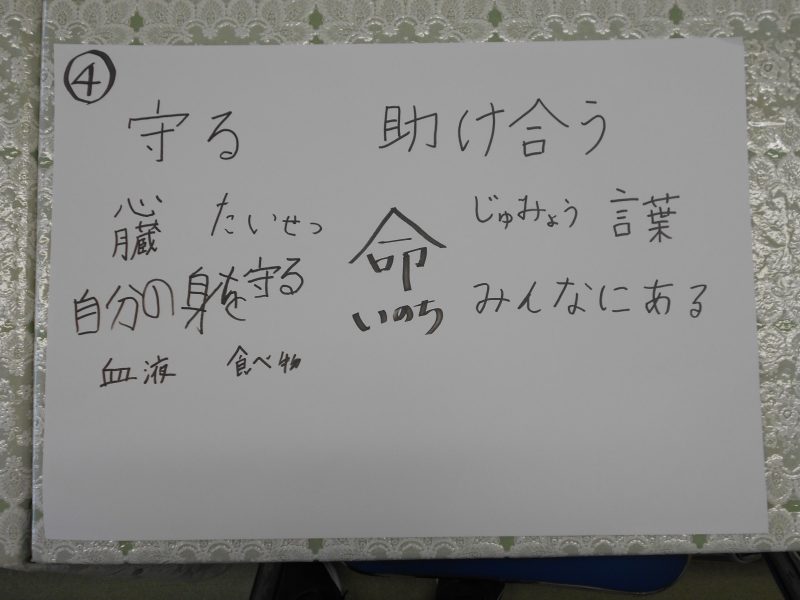 ④
守る 助け合う
心臓 たいせつ じゅみょう 言葉
命
いのち
自分の身を守る みんなにある
血液 食べ物